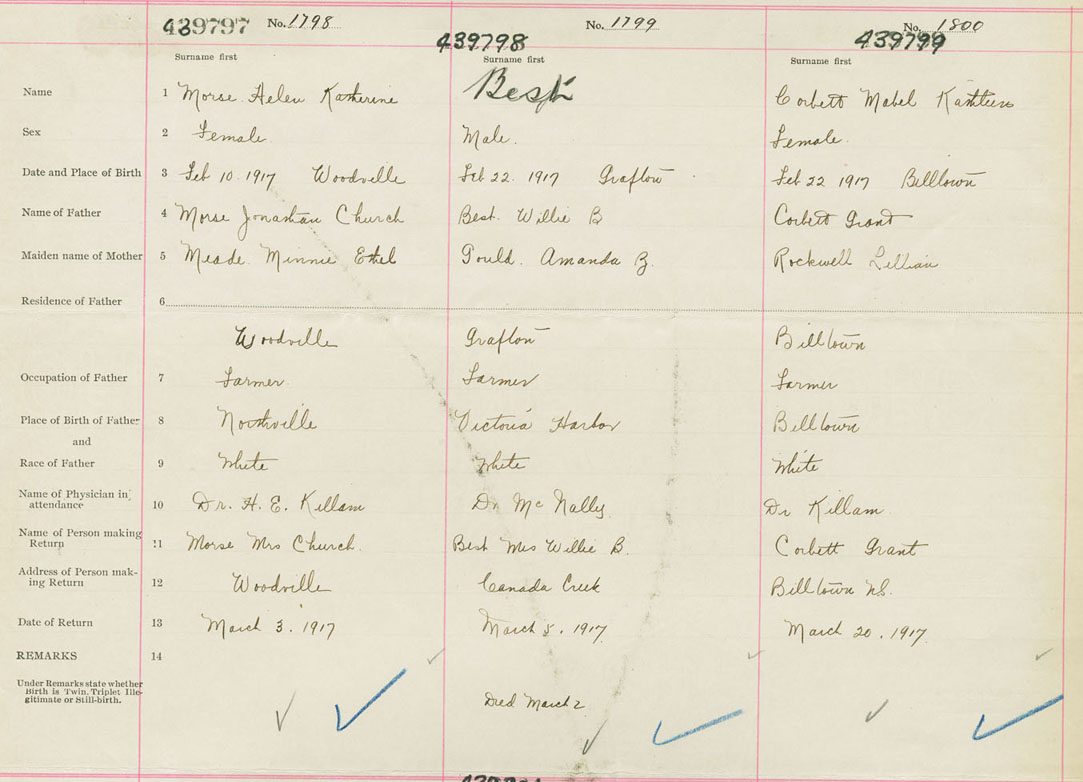 439797 No. 1798
439798 No. 1799
439799 No. 1800
Surname first Surname first Surname first
Name 1 Morse Helen Katherine Best Corbett Mabel Kathleen
Sex 2 Female. Male. Female.
Date and Place of Birth 3 Feb 10. 1917 Woodville Feb 22. 1917 Grafton Feb 22 1917 Billtown
Name of Father 4 Morse Jonathan Church Best. Willie B Corbett Grant
Maiden name of Mother 5 Meade. Minnie Ethel Gould. Amanda Z. Rockwell Lillian
Residence of Father 6
Woodville Grafton Billtown
Occupation of Father 7 Farmer. Farmer Farmer
Place of Birth of Father 8 Northville Victoria Harbor Billtown
and
Race of Father 9 White White White
Name of Physician in
attendance 10 Dr. H. E. Killam Dr McNally. Dr Killam.
Name of Person making
Return 11 Morse Mrs Church. Best Mrs Willie B. Corbett Grant
Address of Person mak-
ing Return 12 Woodville Canada Creek Billtown N.S.
Date of Return 13 March 3. 1917 March 5. 1917 March 20. 1917
REMARKS 14
Under Remarks state whether
Birth is Twin, Triplet Ille-
gitimate or Still-birth.
Died March 2